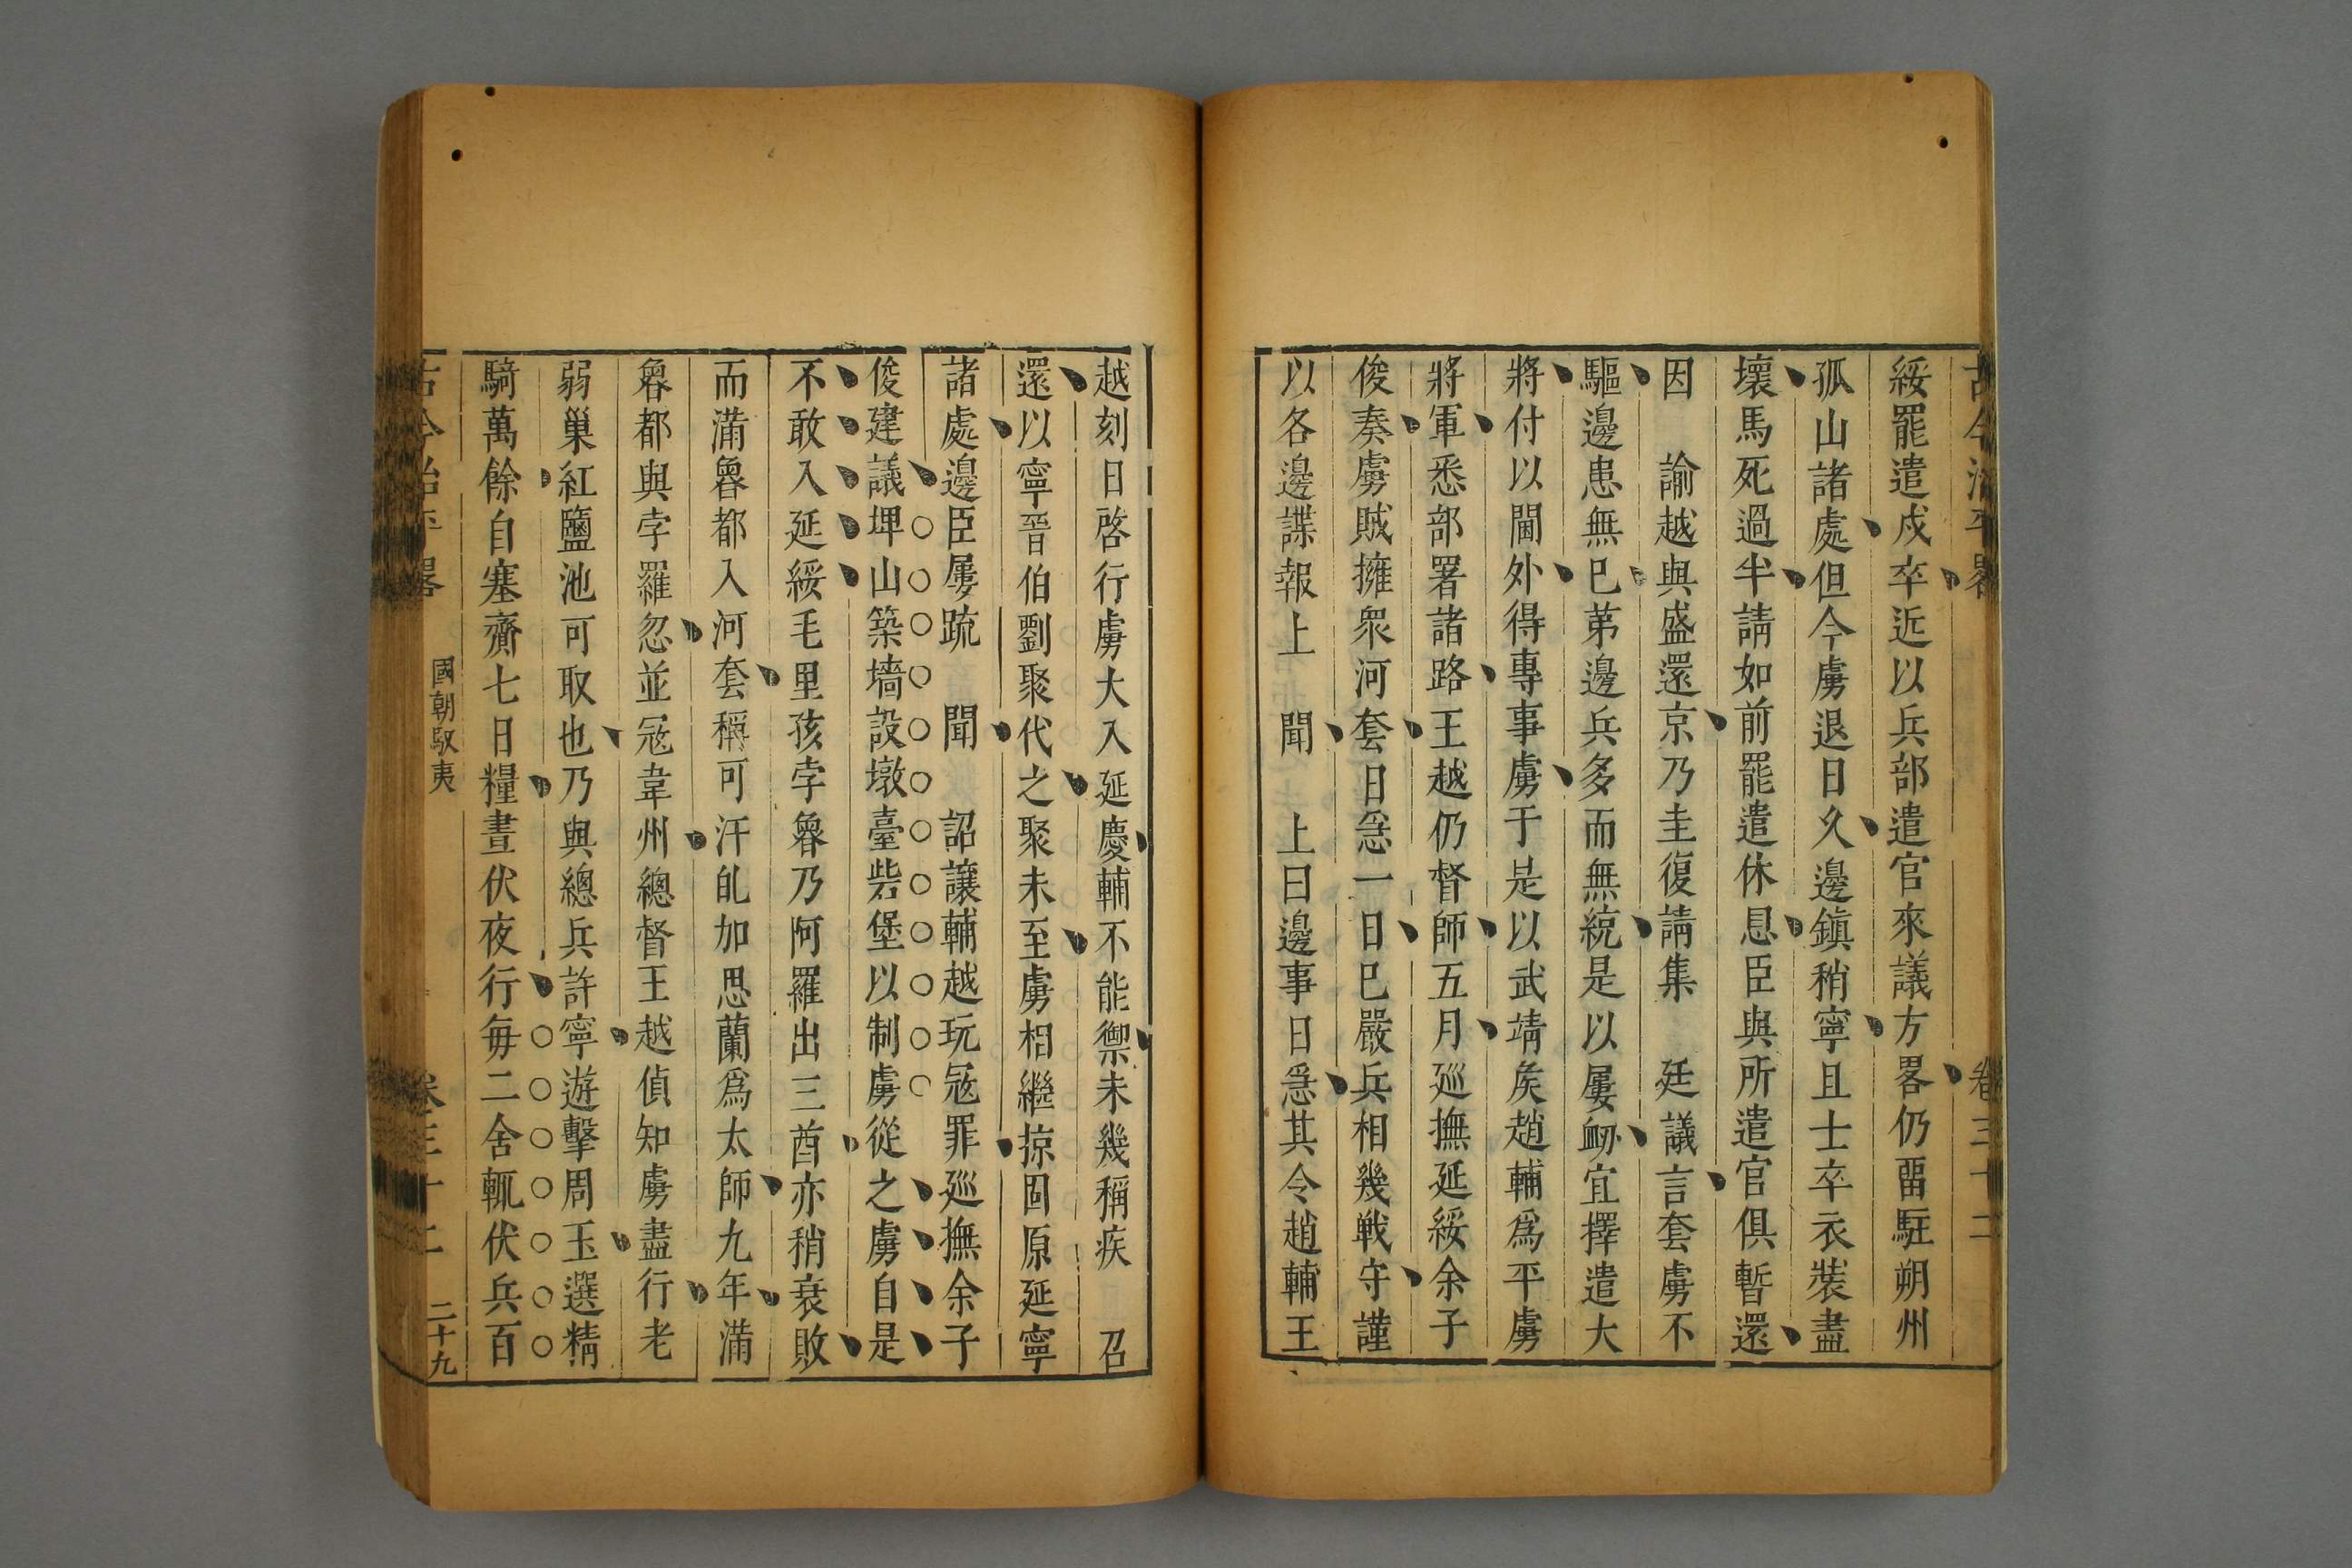 古今治平畧 卷三十二
綏罷遣戍卒近以兵部遣官來議方畧仍畱駐朔州
孤山諸處但今虜退日久邊鎮稍寧且士卒衣裝盡
壞馬死過半請如前罷遣休息臣與所遣官俱暫還
因 諭越與盛還京乃圭復請集 廷議言套虜不
驅邊患無已第邊兵多而無統是以屢衂宜擇遣大
將付以閫外得專事虜于是以武靖矦趙輔爲平虜
將軍悉部署諸路王越仍督師五月廵撫延綏余子
俊奏虜賊擁眾河套日急一日已嚴兵相幾戰守謹
以各邊諜報上 聞 上曰邊事日急其令趙輔王
越刻日啓行虜大入延慶輔不能禦未幾稱疾 召
還以寧晉伯劉聚代之聚未至虜相繼掠固原延寧
諸處邊臣屢䟽 聞 詔讓輔越玩宼罪廵撫余子
俊建議埋山築墻設墩臺砦堡以制虜從之虜自是
不敢入延綏毛里孩孛魯乃阿羅出三酋亦稍衰敗
而滿魯都入河套稱可汗癿加思蘭爲太師九年滿
魯都與孛羅忽並宼韋州總督王越偵知虜盡行老
弱巢紅鹽池可取也乃與總兵許寧遊擊周玉選精
騎萬餘自塞齎七日糧晝伏夜行每二舍輒伏兵百
古今治平畧 國朝馭夷 卷三十二 二十九